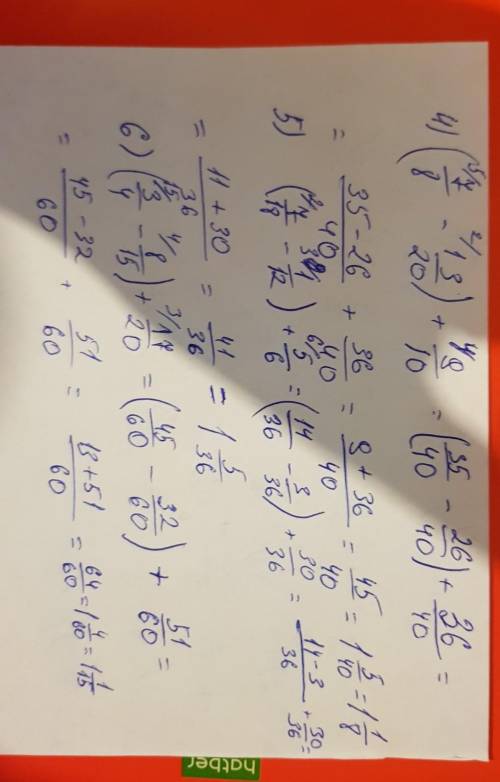 4) (7/8 - 13/20) + 9/10 = (35/40 - 26/40) + 36/40 =
= (35-26)/40 + 36/40 = (9+36)/40 = 45/40 = 1 5/40 = 1 1/8
5) (7/18 - 1/12) + 5/6 = (14/36 - 3/36) + 30/36 = (14-3)/36 + 30/36 =
= (11+30)/36 = 41/36 = 1 5/36
6) (3/4 - 8/15) + 17/20 = (45/60 - 32/60) + 51/60 =
= (45-32)/60 + 51/60 = (13+51)/60 = 64/60 = 1 4/60 = 1 1/15
hatber